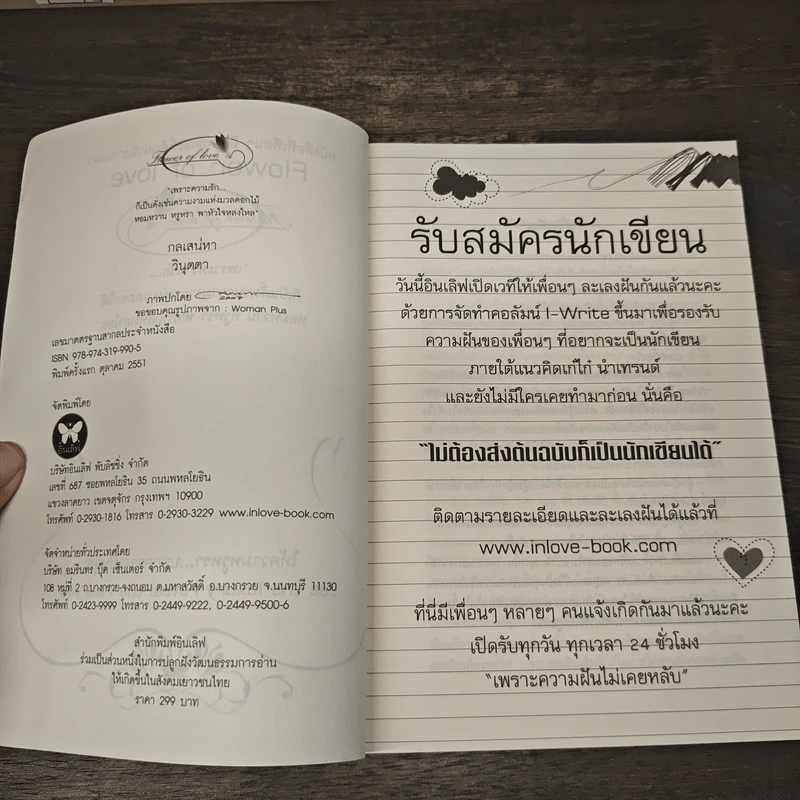 Flower of love
"เพราะความรัก...
ก็เป็นดั่งเช่นความงามแห่งมวลดอกไม้
หอมหวาน หรูหรา พาหัวใจหลงใหล"
กลเสน่หา
วินุตตา
ภาพปกโดย
ขอขอบคุณรูปภาพจาก : Woman Plus
เลขมาตรฐานสากลประจำหนังสือ
ISBN 978-974-319-990-5
พิมพ์ครั้งแรก ตุลาคม 2551
จัดพิมพ์โดย
อินเลิฟ
บริษัทอินเลิฟ พับลิชชิ่ง จำกัด
เลขที่ 687 ซอยพหลโยธิน 35 ถนนพหลโยธิน
แขวงลาดยาว เขตจตุจักร กรุงเทพฯ 10900
โทรศัพท์ 0-2930-1816 โทรสาร 0-2930-3229 www.inlove-book.com
จัดจำหน่ายทั่วประเทศโดย
บริษัท อมรินทร์ บุ๊ค เซ็นเตอร์ จำกัด
108 หมู่ที่ 2 ถ.บางกรวย-จงถนอม ต.มหาสวัสดิ์ อ.บางกรวย จ.นนทบุรี 11130
โทรศัพท์ 0-2423-9999 โทรสาร 0-2449-9222, 0-2449-9500-6
สำนักพิมพ์อินเลิฟ
ร่วมเป็นส่วนหนึ่งในการปลูกฝังวัฒนธรรมการอ่าน
ให้เกิดขึ้นในสังคมเยาวชนไทย
ราคา 299 บาท
รับสมัครนักเขียน
วันนี้อินเลิฟเปิดเวทีให้เพื่อนๆ ละเลงฝันกันแล้วนะคะ
ด้วยการจัดทำคอลัมน์ I-Write ขึ้นมาเพื่อรองรับ
ความฝันของเพื่อนๆ ที่อยากจะเป็นนักเขียน
ภายใต้แนวคิดเก๋ไก๋ นำเทรนด์
และยังไม่มีใครเคยทำมาก่อน นั่นคือ
"ไม่ต้องส่งต้นฉบับก็เป็นนักเขียนได้"
ติดตามรายละเอียดและละเลงฝันได้แล้วที่
www.inlove-book.com
ที่นี่มีเพื่อนๆ หลายๆ คนแจ้งเกิดกันมาแล้วนะคะ
เปิดรับทุกวัน ทุกเวลา 24 ชั่วโมง
"เพราะความฝันไม่เคยหลับ"